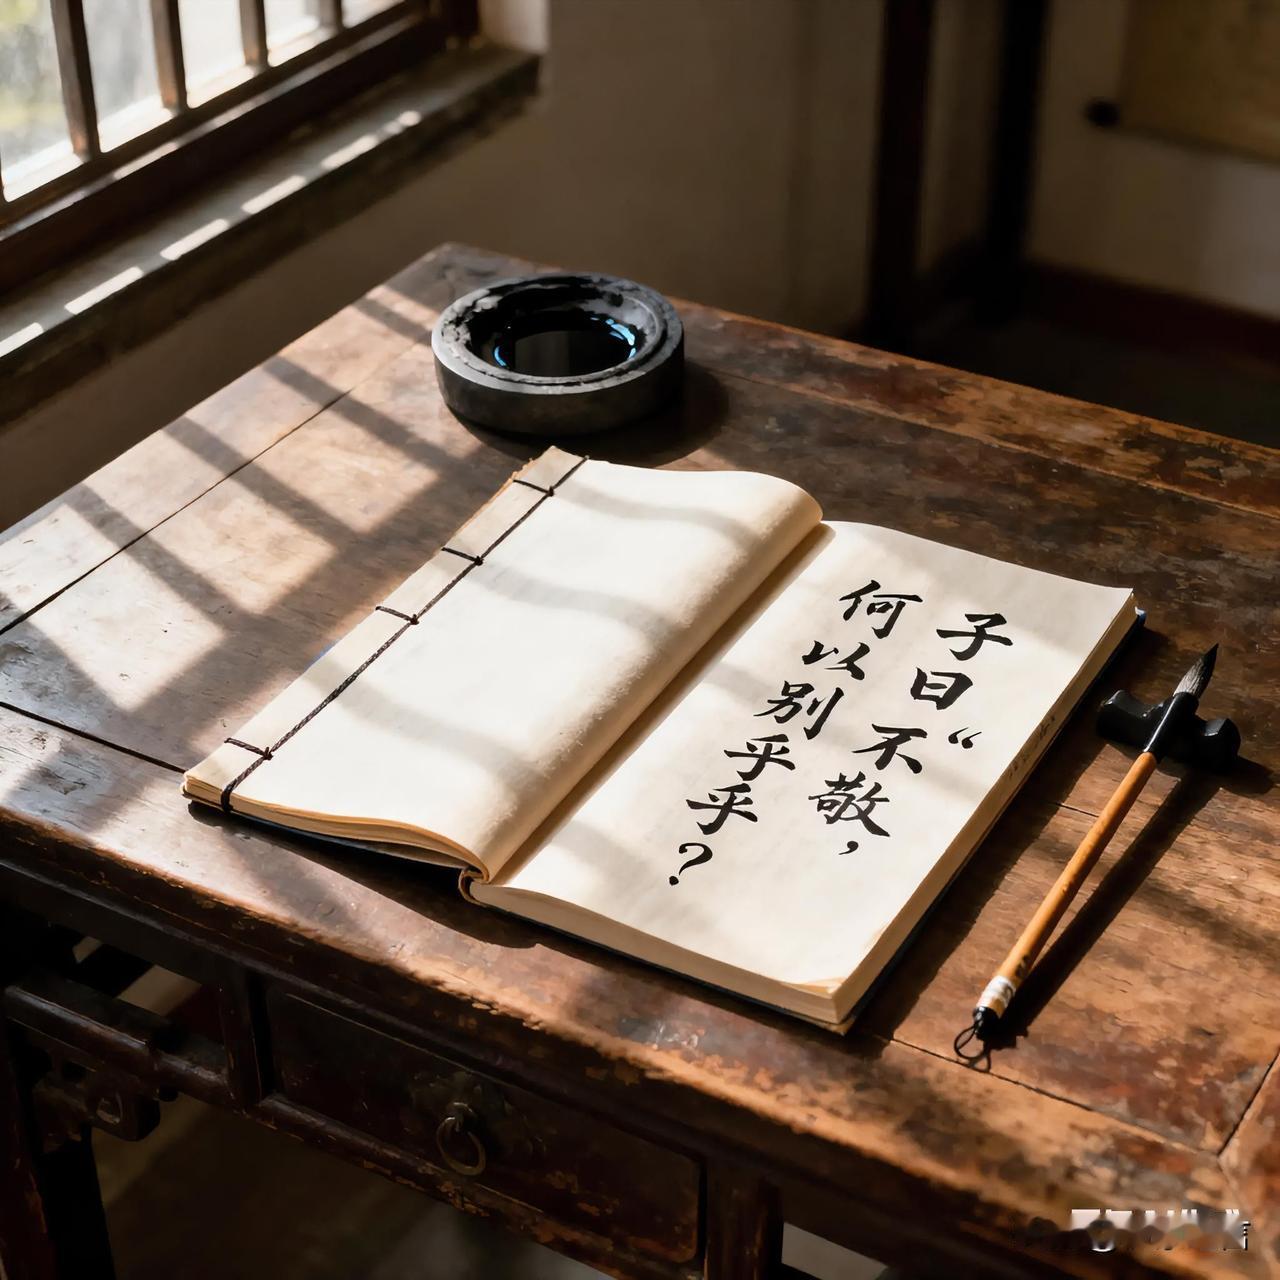 子曰“不敬，
何以别乎乎？